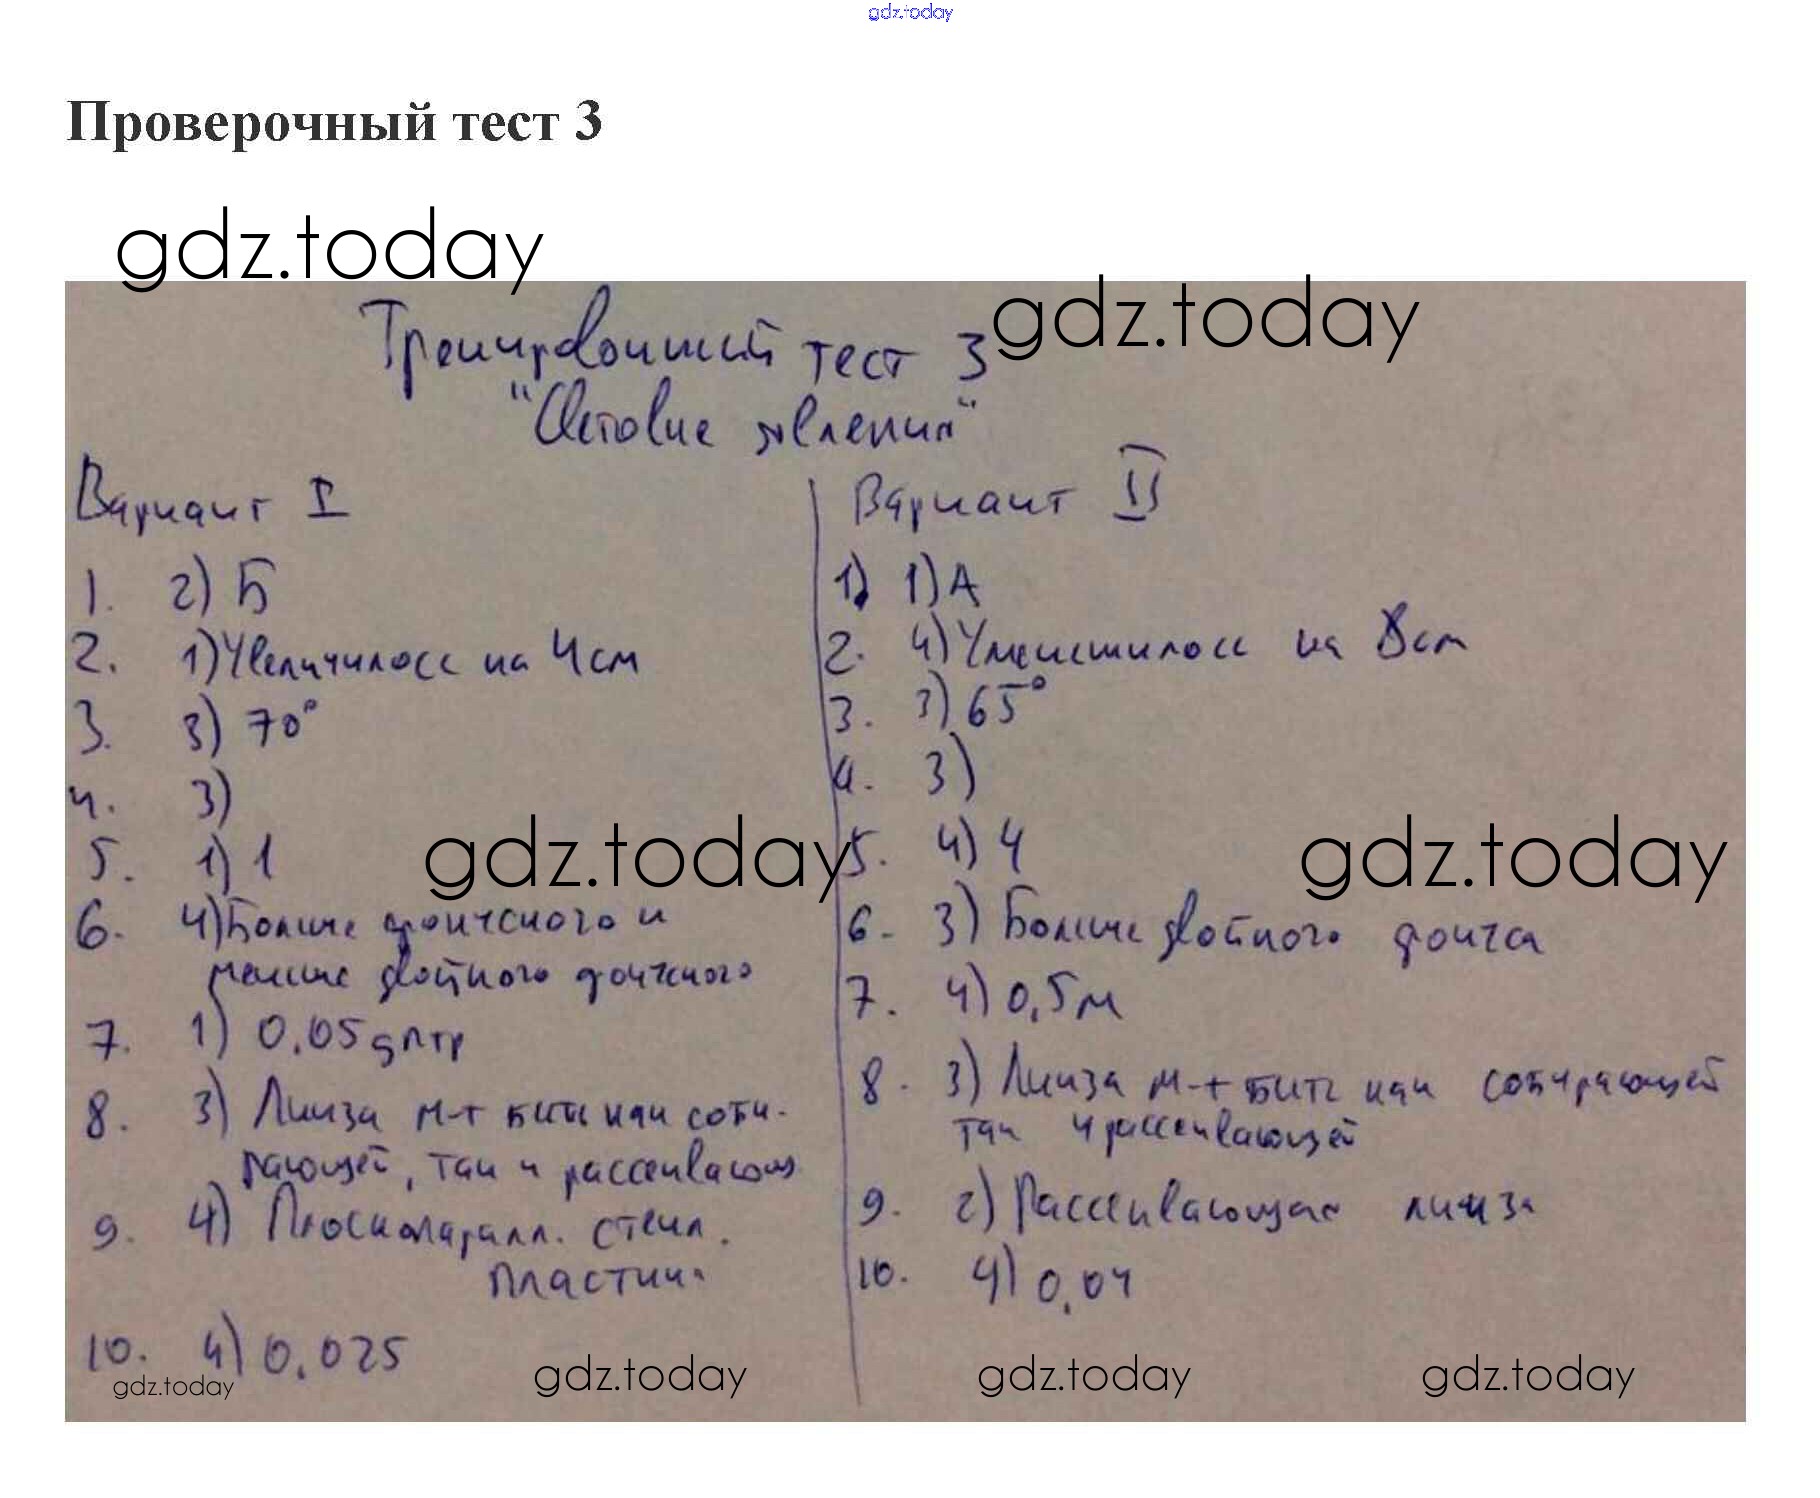 gdz.today
Проверочный тест 3
gdz.today
gdz.today
Тренировочный тест 3
"Световые явления"
Вариант I
1. 2) Б
2. 1) Увеличилось на 4 см
3. 3) 70°
4. 3)
5. 1) 1
6. 4) Больше фокусного и
меньше двойного фокусного
7. 1) 0,05 дптр
8. 3) Линза м-т быть как соби-
рающей, так и рассеивающ
9. 4) Плоскопаралл. стекл.
пластин.
10. 4) 0,025
Вариант II
1) 1) А
2. 4) Уменьшилось на 8 см
3. 3) 65°
4. 3)
5. 4) 4
6. 3) Больше двойного фокуса
7. 4) 0,5 м
8. 3) Линза м-т быть как собирающей
так и рассеивающей
9. 2) Рассеивающая линза
10. 4) 0,04
gdz.today
gdz.today
gdz.today
gdz.today
gdz.today
gdz.today